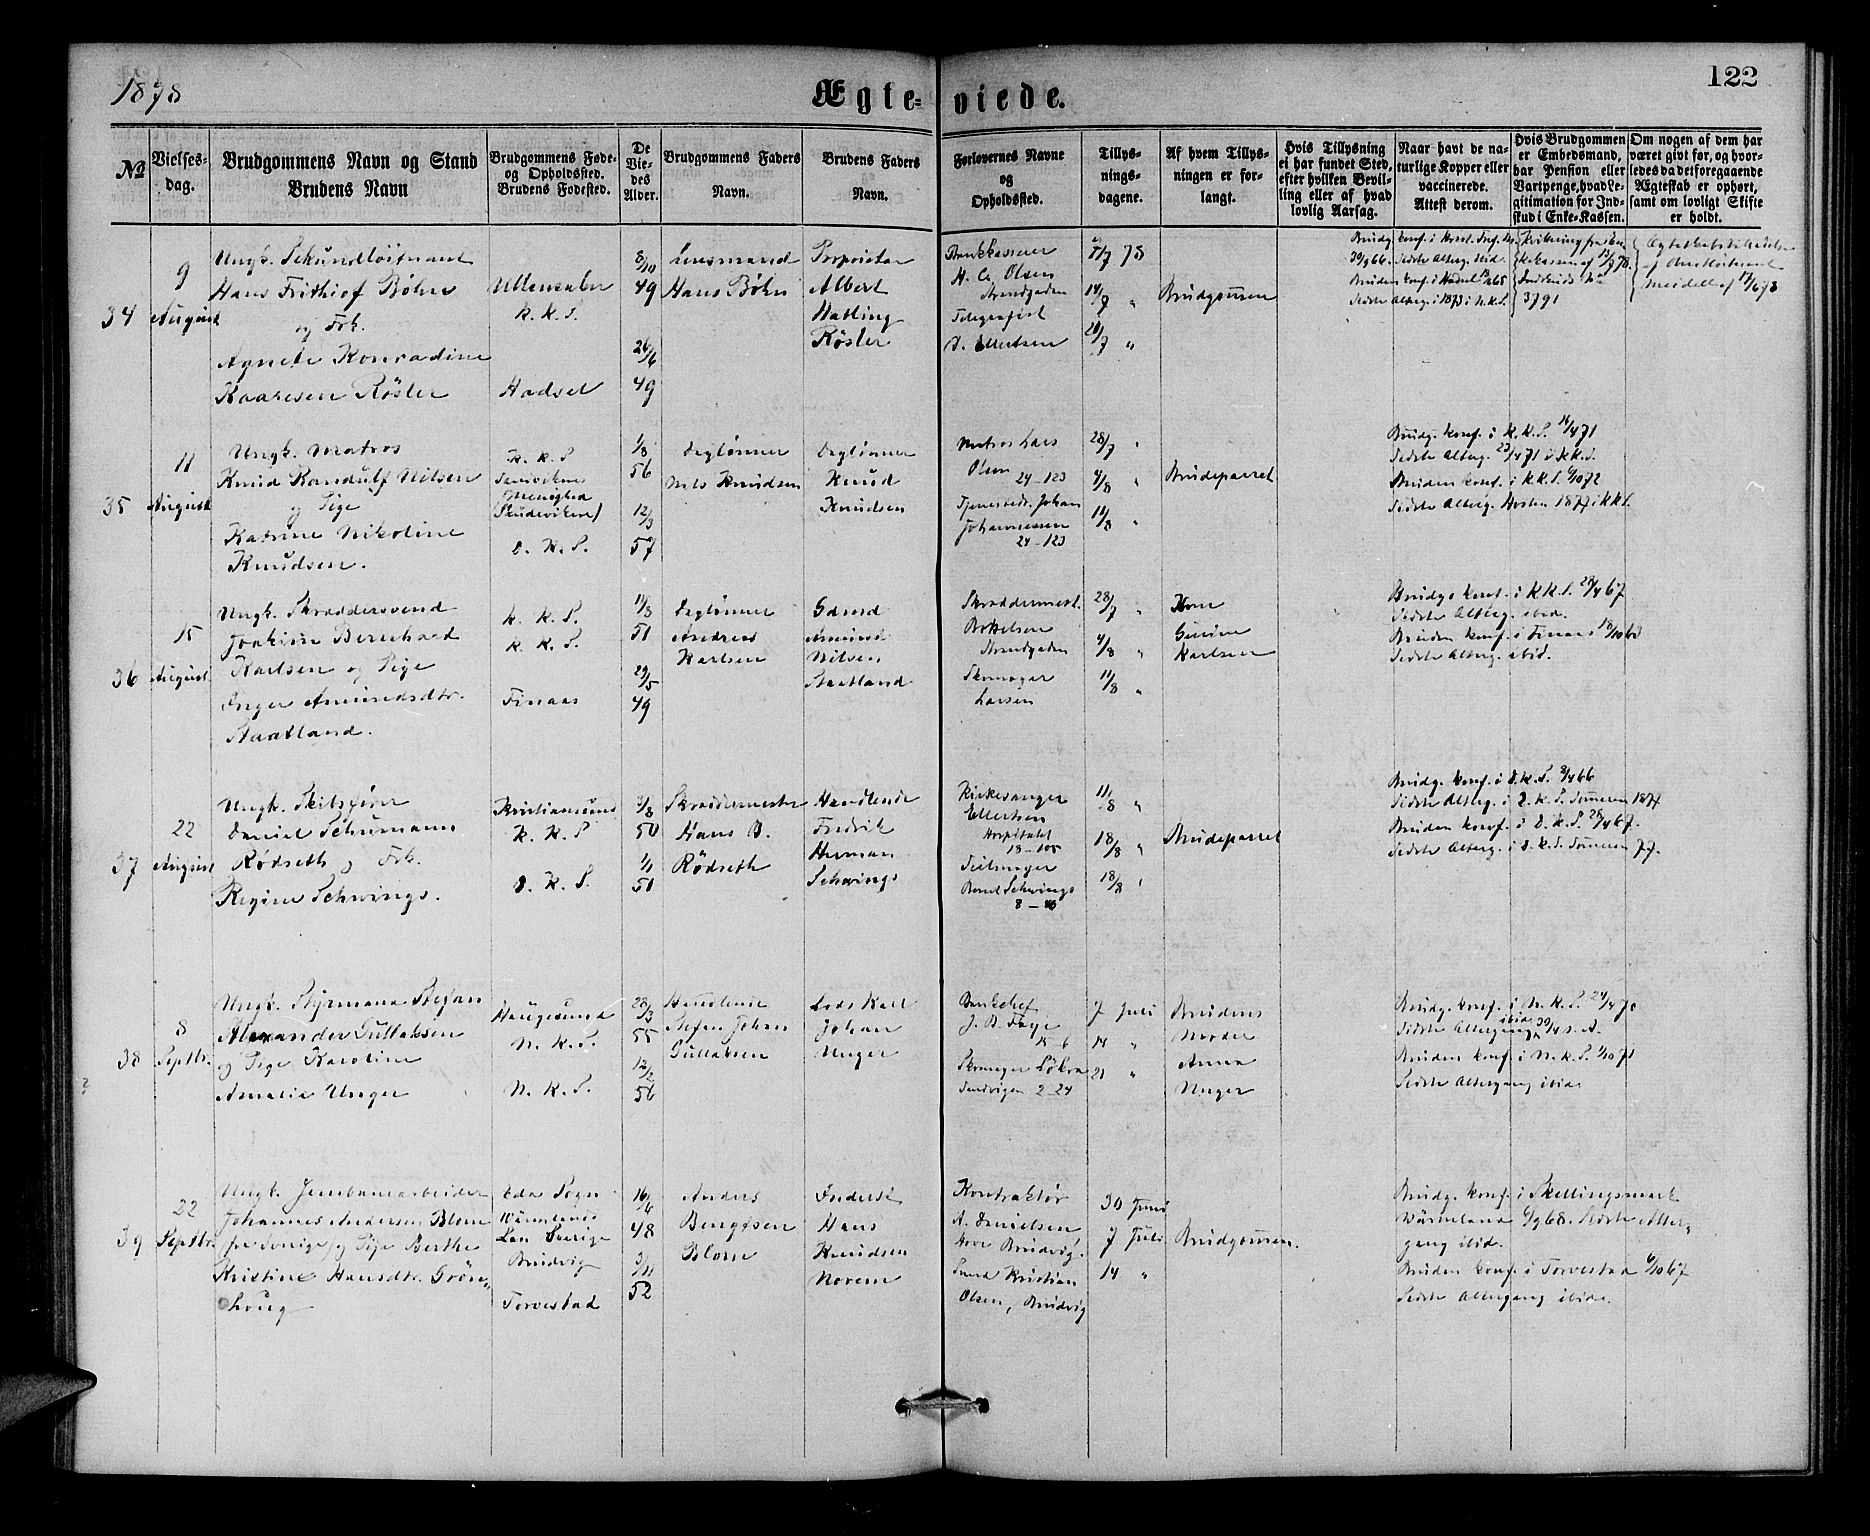 1878
Ægte-viede.
122
No
Vielses-
dag.
Brudgommens Navn og Stand
Brudens Navn
Brudgommens Føde-
og Opholdssted.
Brudens Fødested.
De
Vie-
des
Alder.
Brudgommens Faders
Navn.
Brudens Faders
Navn.
Forlovernes Navne
og
Opholdssted.
Tillys-
nings-
dagene.
Af hvem Tillys-
ningen er for-
langt.
Hvis Tillysning
ei har fundet Sted,
efter hvilken Bevil-
ling eller af hvad
lovlig Aarsag.
Naar havt de na-
turlige Kopper eller
vaccinerede.
Attest derom.
Hvis Brudgommen
er Embedsmand,
har Pension eller
Vartpenge, hvad Le-
gitimation for Ind-
skud i Enke-Kassen.
Om nogen af dem har
været givt før, og hvor-
ledes da det foregaaende
Ægteskab er ophørt,
samt om lovligt Skifte
er holdt.
34
9
August
Ungk. Sekundløitnant
Hans Frithiof Bøhn
og Frk.
Agnete Konradine
Kaaresen Røsler
Ullensaker
K. K. S.
Hadsel
8/10
49
26/6
49
Lensmand
Hans Bøhn
Proprietær
Albert
Hatling
Røsler
Bankkasserer
H. C. Olsen
Strandgaden
Telegrafist
D. Ellertsen
7/7 78
14/7 "
21/7 "
Brudgommen
3791
35
11
August
Ungk. Matros
Knud Randulf Nilsen
og Pige
Katrine Nikoline
Knudsen.
K. K. S
Sandvikens
Menighed
(Skudeviken)
D. K. S.
1/8
56
12/3
57
Daglønner
Nils Knudsen
Daglønner
Knud
Knudsen
Matros Lars
Olsen
24-123
Tjenestedr. Johan
Johannessen
24-123
28/7 "
4/8 "
11/8 "
Brudeparret
Brudg. konf. i K. K. S. 16/4 71
Sidste Alterg. 23/4 71 i K.K.S.
Bruden konf. i K.K.S. 6/10 72
Sidste Alterg. Høsten 1877 i K.K.S.
36
15
August
Ungk. Skræddersvend
Joakim Bernhard
Karlsen og Pige
Inger Amundsdtr.
Staatland.
K. K. S.
K. K. S.
Finaas
11/8
51
29/5
49
Daglønner
Andreas
Karlsen
Gdmd
Amund
Nilsen
Staatland
Skræddermest.
Strandgaden
Skomager
Larsen
28/7 "
4/8 "
11/8 "
Kone
Karlsen
Brudg. konf. i K.K.S. 28/4 67
Sidste Alterg. ibid.
Bruden konf. i Finaas 18/10 63
Sidste Alterg. ibid.
37
22
August
Ungk. Skibsfører
Daniel Schumann
Rødseth og Frk.
Regine Schwings.
Kristiansund
K. K. S.
D. K. S.
3/8
50
1/1
51
Skræddermester
Hans B.
Rødseth
Handlende
Fredrik
Herman
Schwings
Kirkesanger
Ellertsen
Hospitalet
18-105
Seilmager
Bernt Schwings
11/8 "
18/8 "
18/8 "
Brudeparret
Brudg. konf. i D.K.S. 8/4 66
Sidste Alterg. i D.K.S. Sommeren 1877
Bruden konf. i D.K.S. 28/4 67.
Sidste Alterg. i D.K.S. Sommeren 77.
38
8
Septbr.
Ungk. Styrmand Stefan
Alexander Gullaksen
og Pige Karoline
Amalie Unger
Haugesund
N. K. S.
N. K. S.
28/3
55
12/2
56
Handlende
Stefan Johan
Gullaksen
Lods Karl
Johan
Unger
Bankchef
J. B. Faye
15-6
Sandvigen 2-24
7 Juli
14 "
21 "
Brudens
Moder
Anna
Unger
Brudg. konf. i N.K.S. 24/4 70
Sidste Altergang ibid.
Bruden konf. i N.K.S. 1/10 71
Sidste Altergang ibid.
39
22
Septbr.
Ungk. Jernbanearbeider
Johannes Andersen Blom
fra Sverige og Pige Berthe
Kristine Hansdtr. Grøn-
houg
Eda Sogn
Wärmlands
Län Sverige
Bruvig
Torvestad
16/6
48
3/11
52
Anders
Bengtsen
Blom
Inderst
Hans
Knudsen
Norem
Kontraktør
A. Danielsen
Bruvig.
Smed Kristian
Olsen, Bruvig
30 Juni
7 Juli
14 "
Brudgommen.
Brudg. konf. i Skellingsmark
Wärmland 6/9 68. Sidste Alter-
gang ibid.
Bruden konf. i Torvestad 6/10 67
Sidste Altergang ibid.